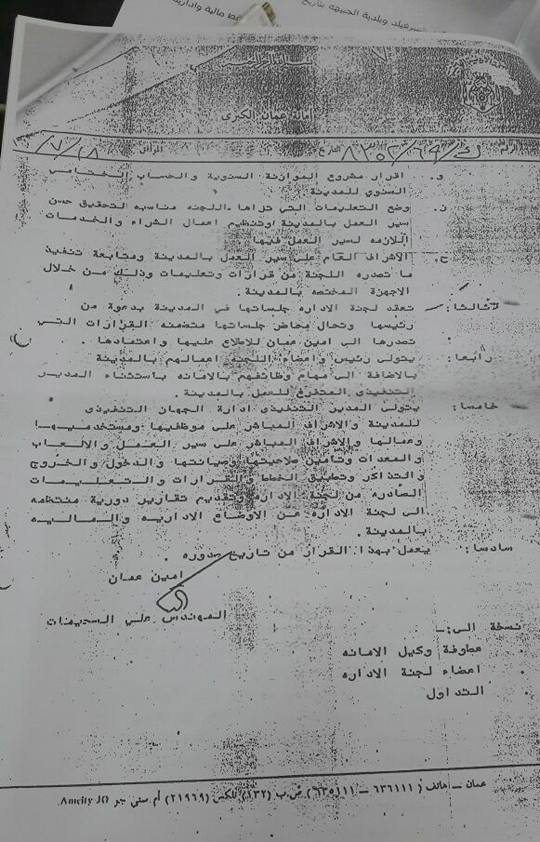 امانة عمان الكبرى
التاريخ
و. اقرار مشروع الموازنة السنوية والحساب الختامي
السنوي للمدينة
ز. وضع التعليمات التي تراها اللجنه مناسبه لتحقيق حسن
سير العمل بالمدينة وتنظيم اعمال الشراء والخدمات
اللازمه لسير العمل فيها
ح. الاشراف العام على سير العمل بالمدينة ومتابعة تنفيذ
ما تصدره اللجنة من قرارات وتعليمات وذلك من خلال
الاجهزة المختصه بالمدينة.
ثالثا: تعقد لجنة الاداره جلساتها في المدينة بدعوة من
رئيسها وتحال محاضر جلساتها متضمنه القرارات التي
تصدرها الى امين عمان للاطلاع عليها واعتمادها.
رابعا: يتولى رئيس واعضاء اللجنه اعمالهم بالمدينة
بالاضافة الى مهام وظائفهم بالامانه باستثناء المدير
التنفيذي المتفرغ للعمل بالمدينة.
خامسا: يتولى المدير التنفيذي ادارة الجهاز التنفيذي
للمدينة والاشراف المباشر على موظفيها ومستخدميها
وعمالها والاشراف المباشر على سير العمل والالعاب
والمعدات وتامين صلاحيتها وصيانتها والدخول والخروج
والتذاكر وتطبيق الخطط والقرارات والتعليمات
الصادره من لجنة الاداره وتقديم تقارير دورية منتظمه
الى لجنة الاداره عن الاوضاع الاداريه والماليه
بالمدينة.
سادسا: يعمل بهذا القرار من تاريخ صدوره.
امين عمان
المهندس علي السحيمات
نسخة الى:-
عطوفة وكيل الامانه
اعضاء لجنة الاداره
التداول
عمان - هاتف ( ٦٣٦١١١ - ٦٣٥١١١) ص.ب (١٣٢) تلكس (٢١٩٦٩) أم ستي جو Amcity JO